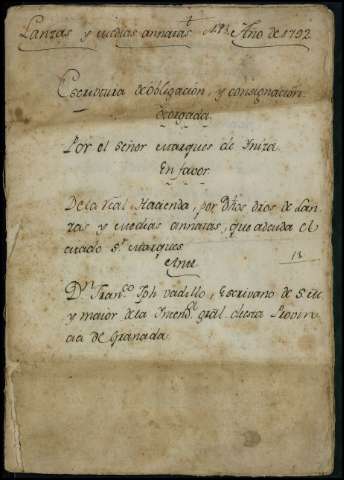 Lanzas y medias annatas Año de 1792
Escriptura de obligacion, y consignacion
otorgada
Por el señor Marques de Yniza
En favor
De la Rl. Hacienda, por Dhos dros de Lan
zas y Medias annatas, que adeuda el
citado Sr. Marques
Ante
13
Dn. Franco. Jph vadillo, Escrivano de S. M.
y maior de la Intendª. gral. de esta Provin
cia de Granada